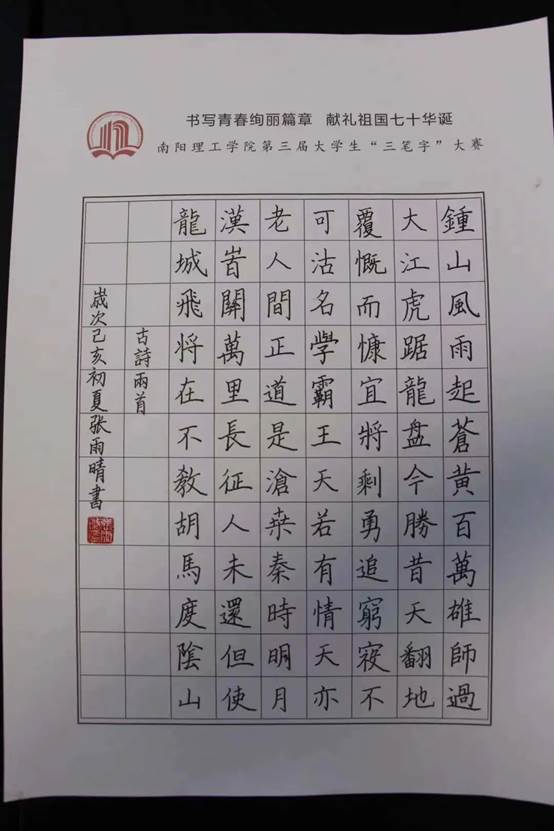 书写青春绚丽篇章 献礼祖国七十华诞
南阳理工学院第三届大学生“三笔字”大赛
鍾山風雨起蒼黄百萬雄師過
大江虎踞龍盘今勝昔天翻地
覆慨而慷宜將剩勇追窮寇不
可沽名學霸王天若有情天亦
老人間正道是滄桒秦時明月
漢峕關萬里長征人未還但使
龍城飛将在不教胡馬度陰山
古詩兩首
歲次己亥初夏张雨晴書